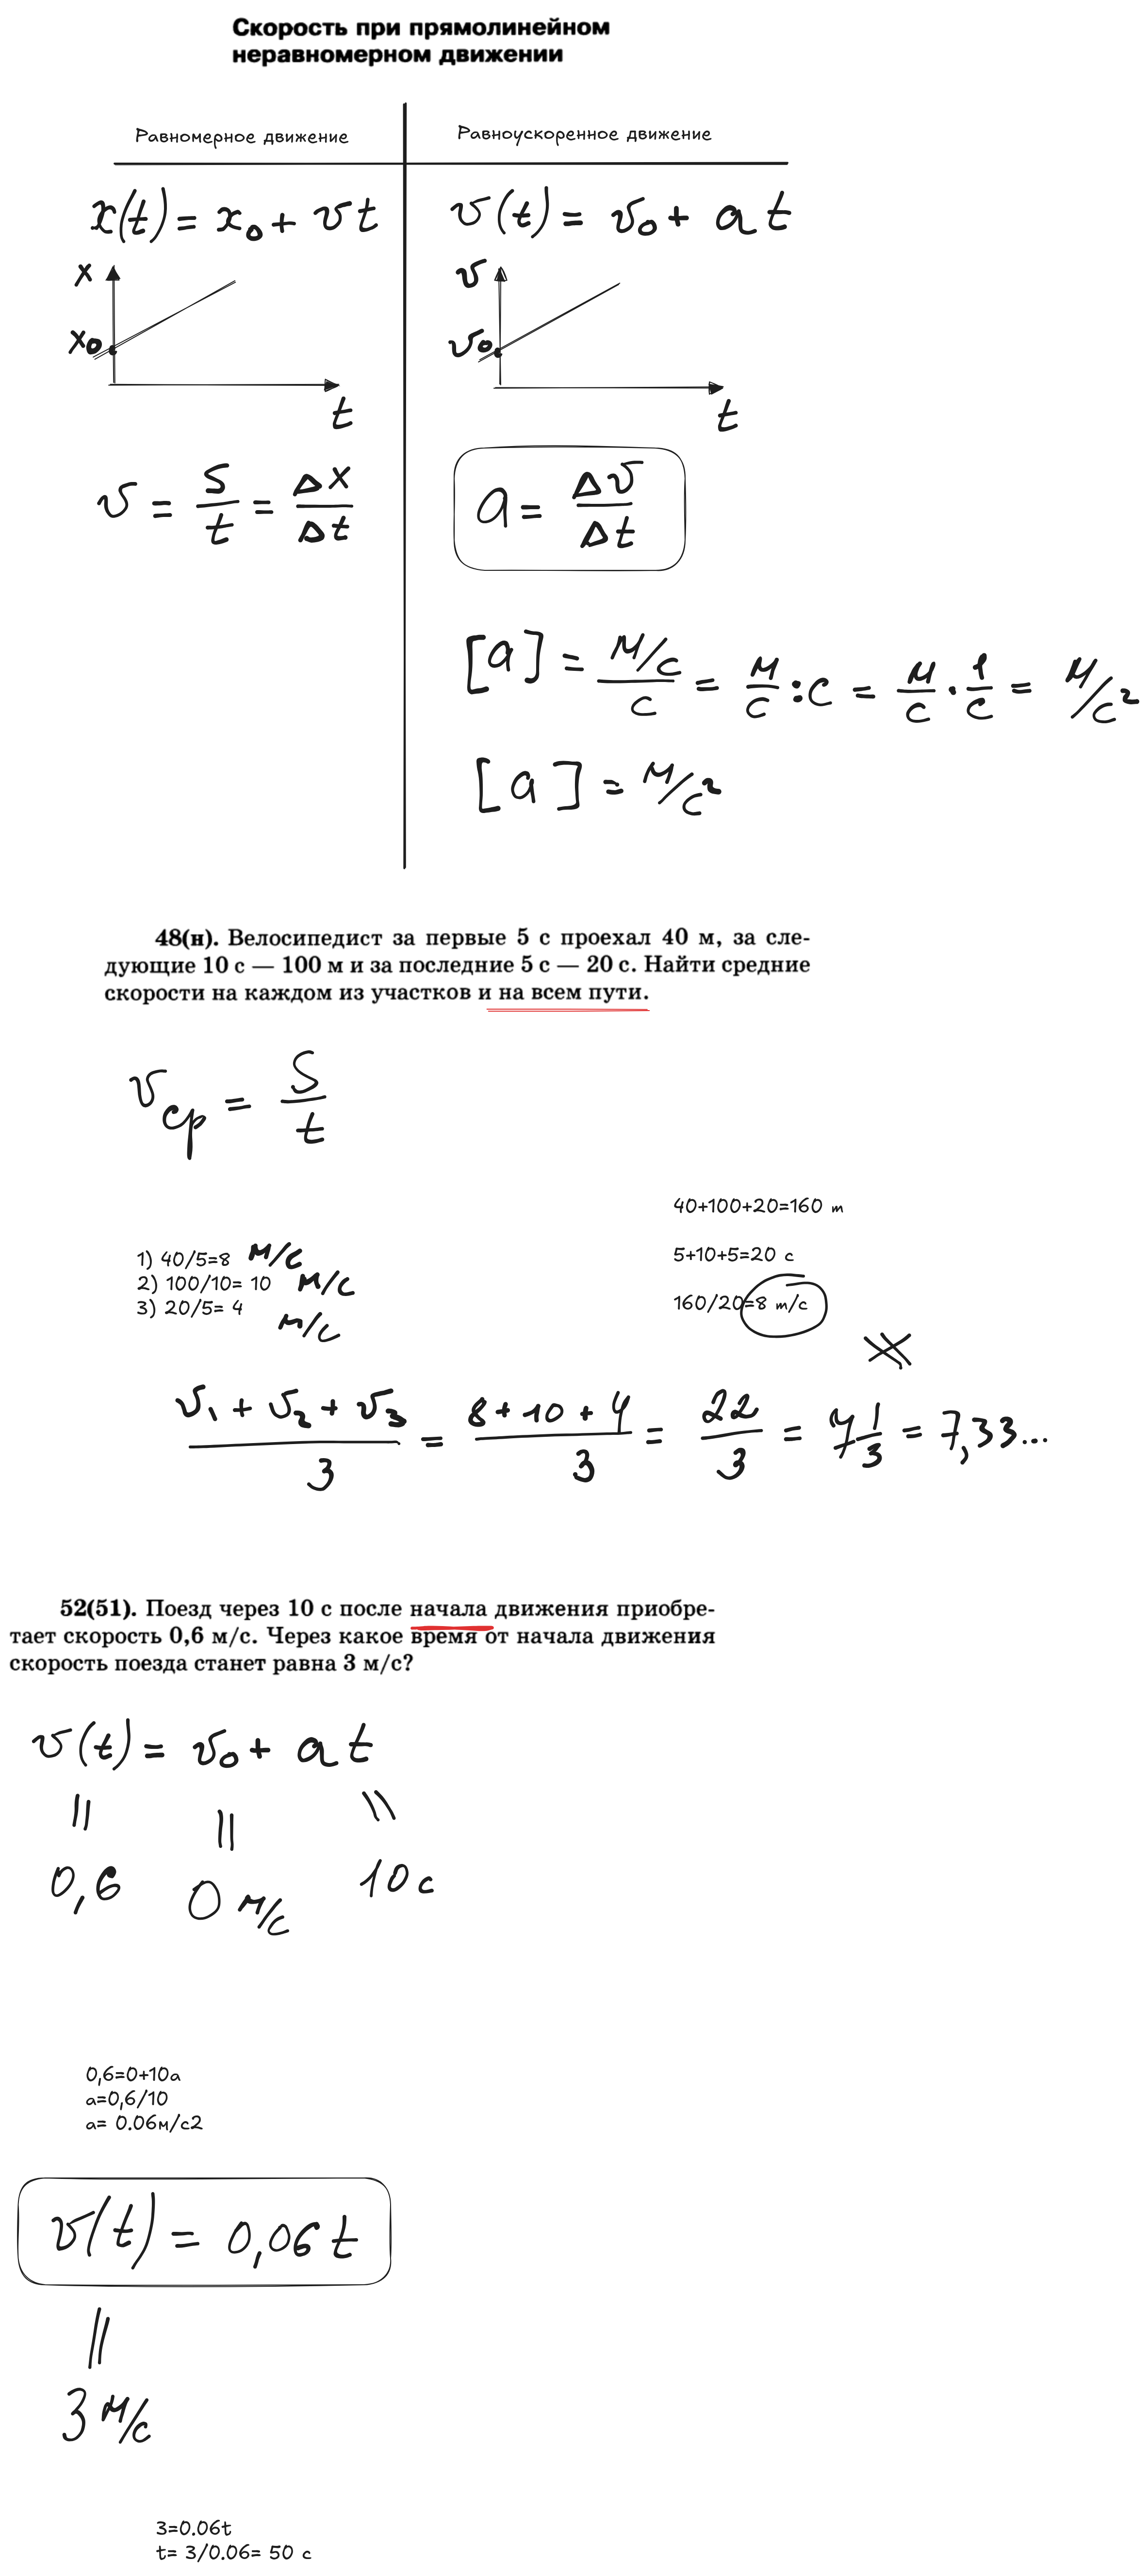 Скорость при прямолинейном
неравномерном движении
Равномерное движение
x(t) = x₀ + vt
x
x₀
t
v = S/t = Δx/Δt
Равноускоренное движение
v(t) = v₀ + at
v
v₀
t
a = Δv/Δt
[a] = м/с / с = м/с : с = м/с · 1/с = м/с²
[a] = м/с²
48(н). Велосипедист за первые 5 с проехал 40 м, за сле-
дующие 10 с — 100 м и за последние 5 с — 20 с. Найти средние
скорости на каждом из участков и на всем пути.
v ср = S/t
1) 40/5=8 м/с
2) 100/10= 10 м/с
3) 20/5= 4 м/с
40+100+20=160 m
5+10+5=20 c
160/20=8 m/c
(v₁ + v₂ + v₃)/3 = (8 + 10 + 4)/3 = 22/3 = 7 1/3 = 7,33...
52(51). Поезд через 10 с после начала движения приобре-
тает скорость 0,6 м/с. Через какое время от начала движения
скорость поезда станет равна 3 м/с?
v(t) = v₀ + at
|| || ||
0,6 0 м/с 10 с
0,6=0+10a
a=0,6/10
a= 0.06м/с2
v(t) = 0,06 t
||
3 м/с
3=0.06t
t= 3/0.06= 50 c